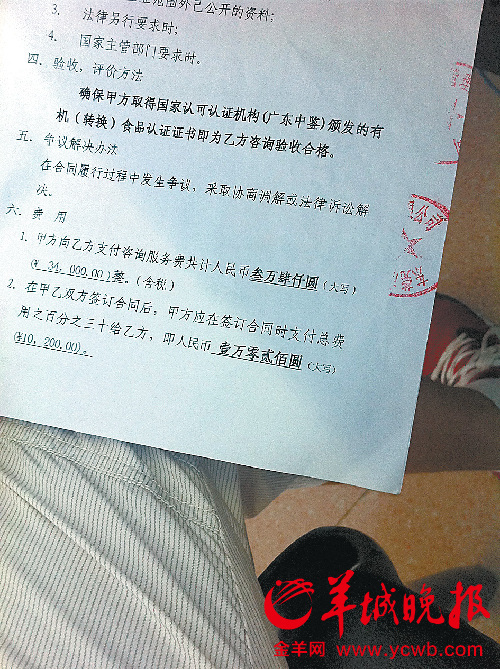 范围外已公开的资料；
3. 法律另行要求时；
4. 国家主管部门要求时。
四. 验收，评价方法
确保甲方取得国家认可认证机构(广东中鉴)颁发的有
机（转换）食品认证证书即为乙方咨询验收合格。
五. 争议解决办法
在合同履行过程中发生争议，采取协商调解或法律诉讼解
决。
六. 费 用
1. 甲方向乙方支付咨询服务费共计人民币叁万肆仟圆（大写）
(¥ 34,000.00)整。（含税）
2. 在甲乙双方签订合同后，甲方应在签订合同时支付总费
用之百分之三十给乙方，即人民币 壹万零贰佰圆（大写）
(¥10,200.00)。
羊城晚报
金羊网 www.ycwb.com